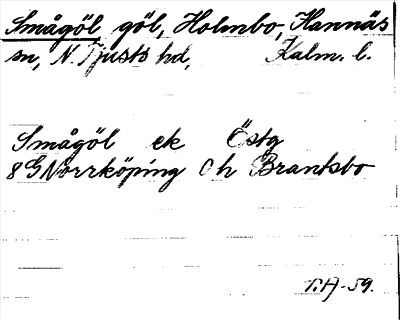 Smågöl göl, Holmbo, Hannäs
sn, N. Tjusts hd, Kalm. l.
Smågöl ek Östg
8G Norrköping Ch Brantsbo
T.A-59.